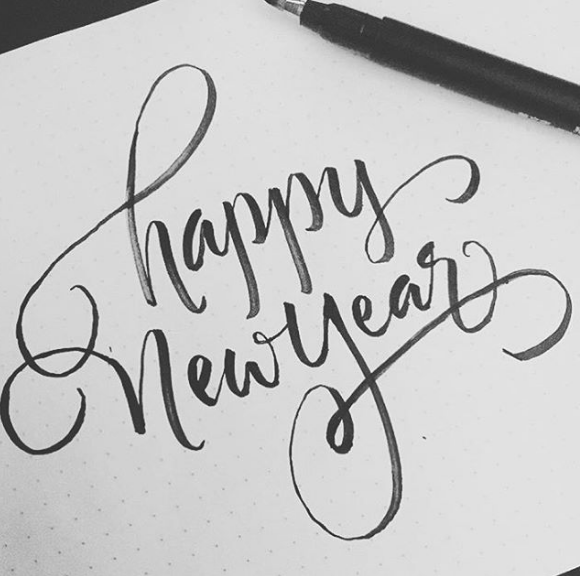 happy
New Year